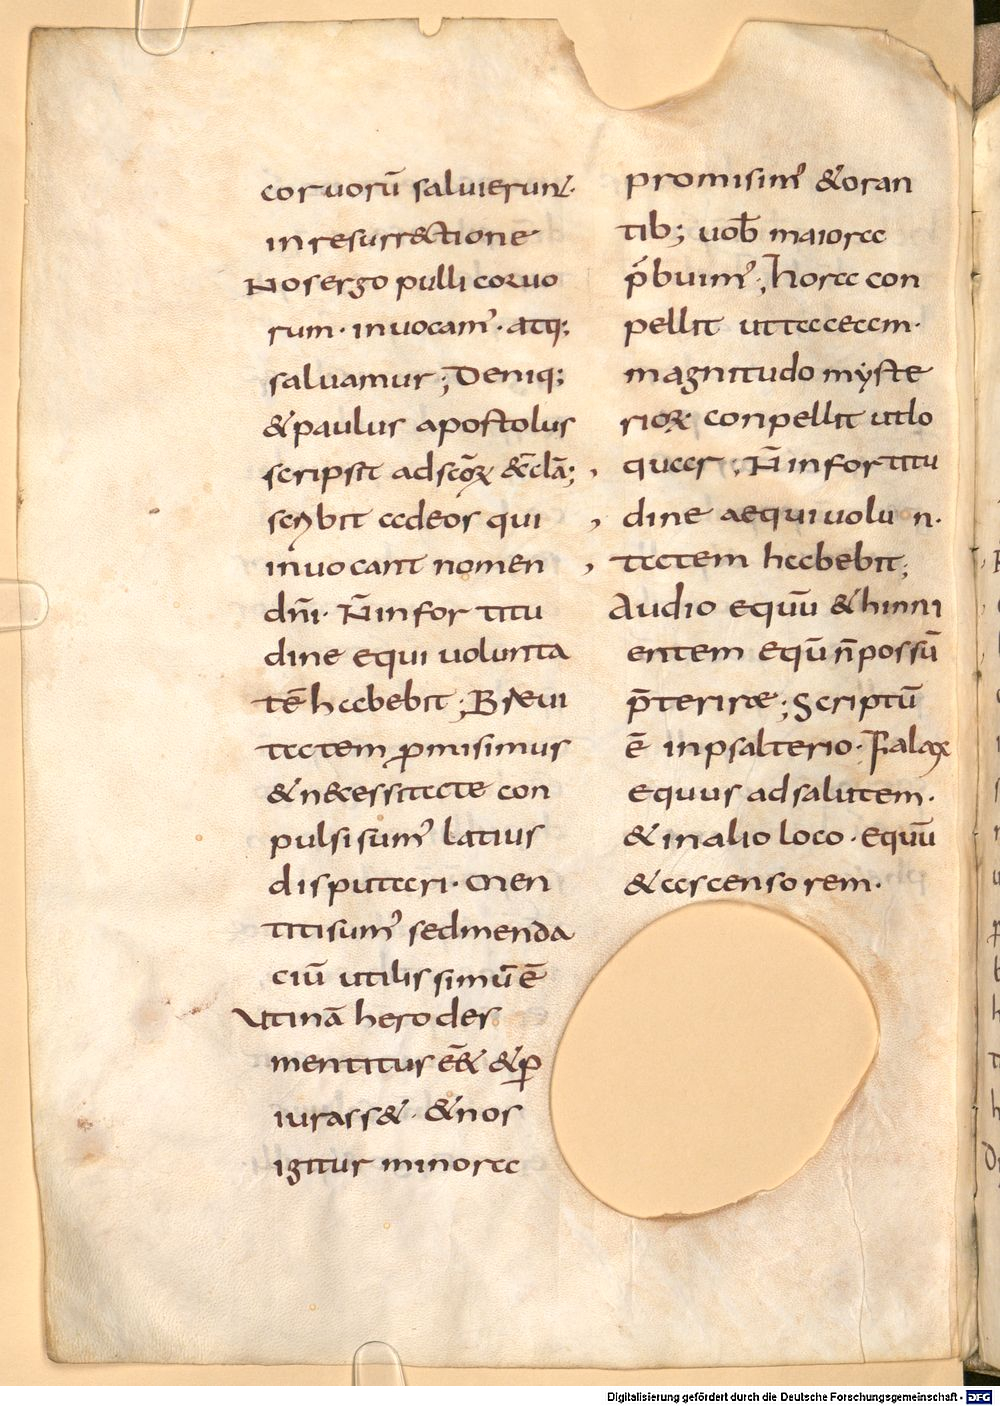 coruorū saluierunt·
in resurrectione
Nos ergo pulli coruo
rum· inuocam᾽· atq;
saluamur; Deniq;
& paulus apostolus
scripsit ad scōꝝ &c̄clā;
scribit ad eos qui
inuocant nomen
dn̄i· N̄ in fortitu
dine equi uolunta
tē habebit; Breui
tatem ꝓmisimus
& n&cessitate con
pulsi sum᾽ latius
disputari· Men
titi sum᾽ sed menda
ciū utilissimū ē
Utinā herodes
mentitus eēt & ꝑ
iurass&· & nos
igitur minora
promisim᾽ & oran
tib; uob̄ maiora
p̄buim᾽; Hora con
pellit ut taceam·
magnitudo myste
rioꝝ conpellit ut lo
quar; N̄ in fortitu
dine aequi uolun·
tatem habebit;
Audio equū & hinni
entem equū n̄ possū
p̄terirae; Scriptū
ē in psalterio· Falax
equus ad salutem·
& in alio loco· equū
& ascensorem·
Digitalisierung gefördert durch die Deutsche Forschungsgemeinschaft - DFG